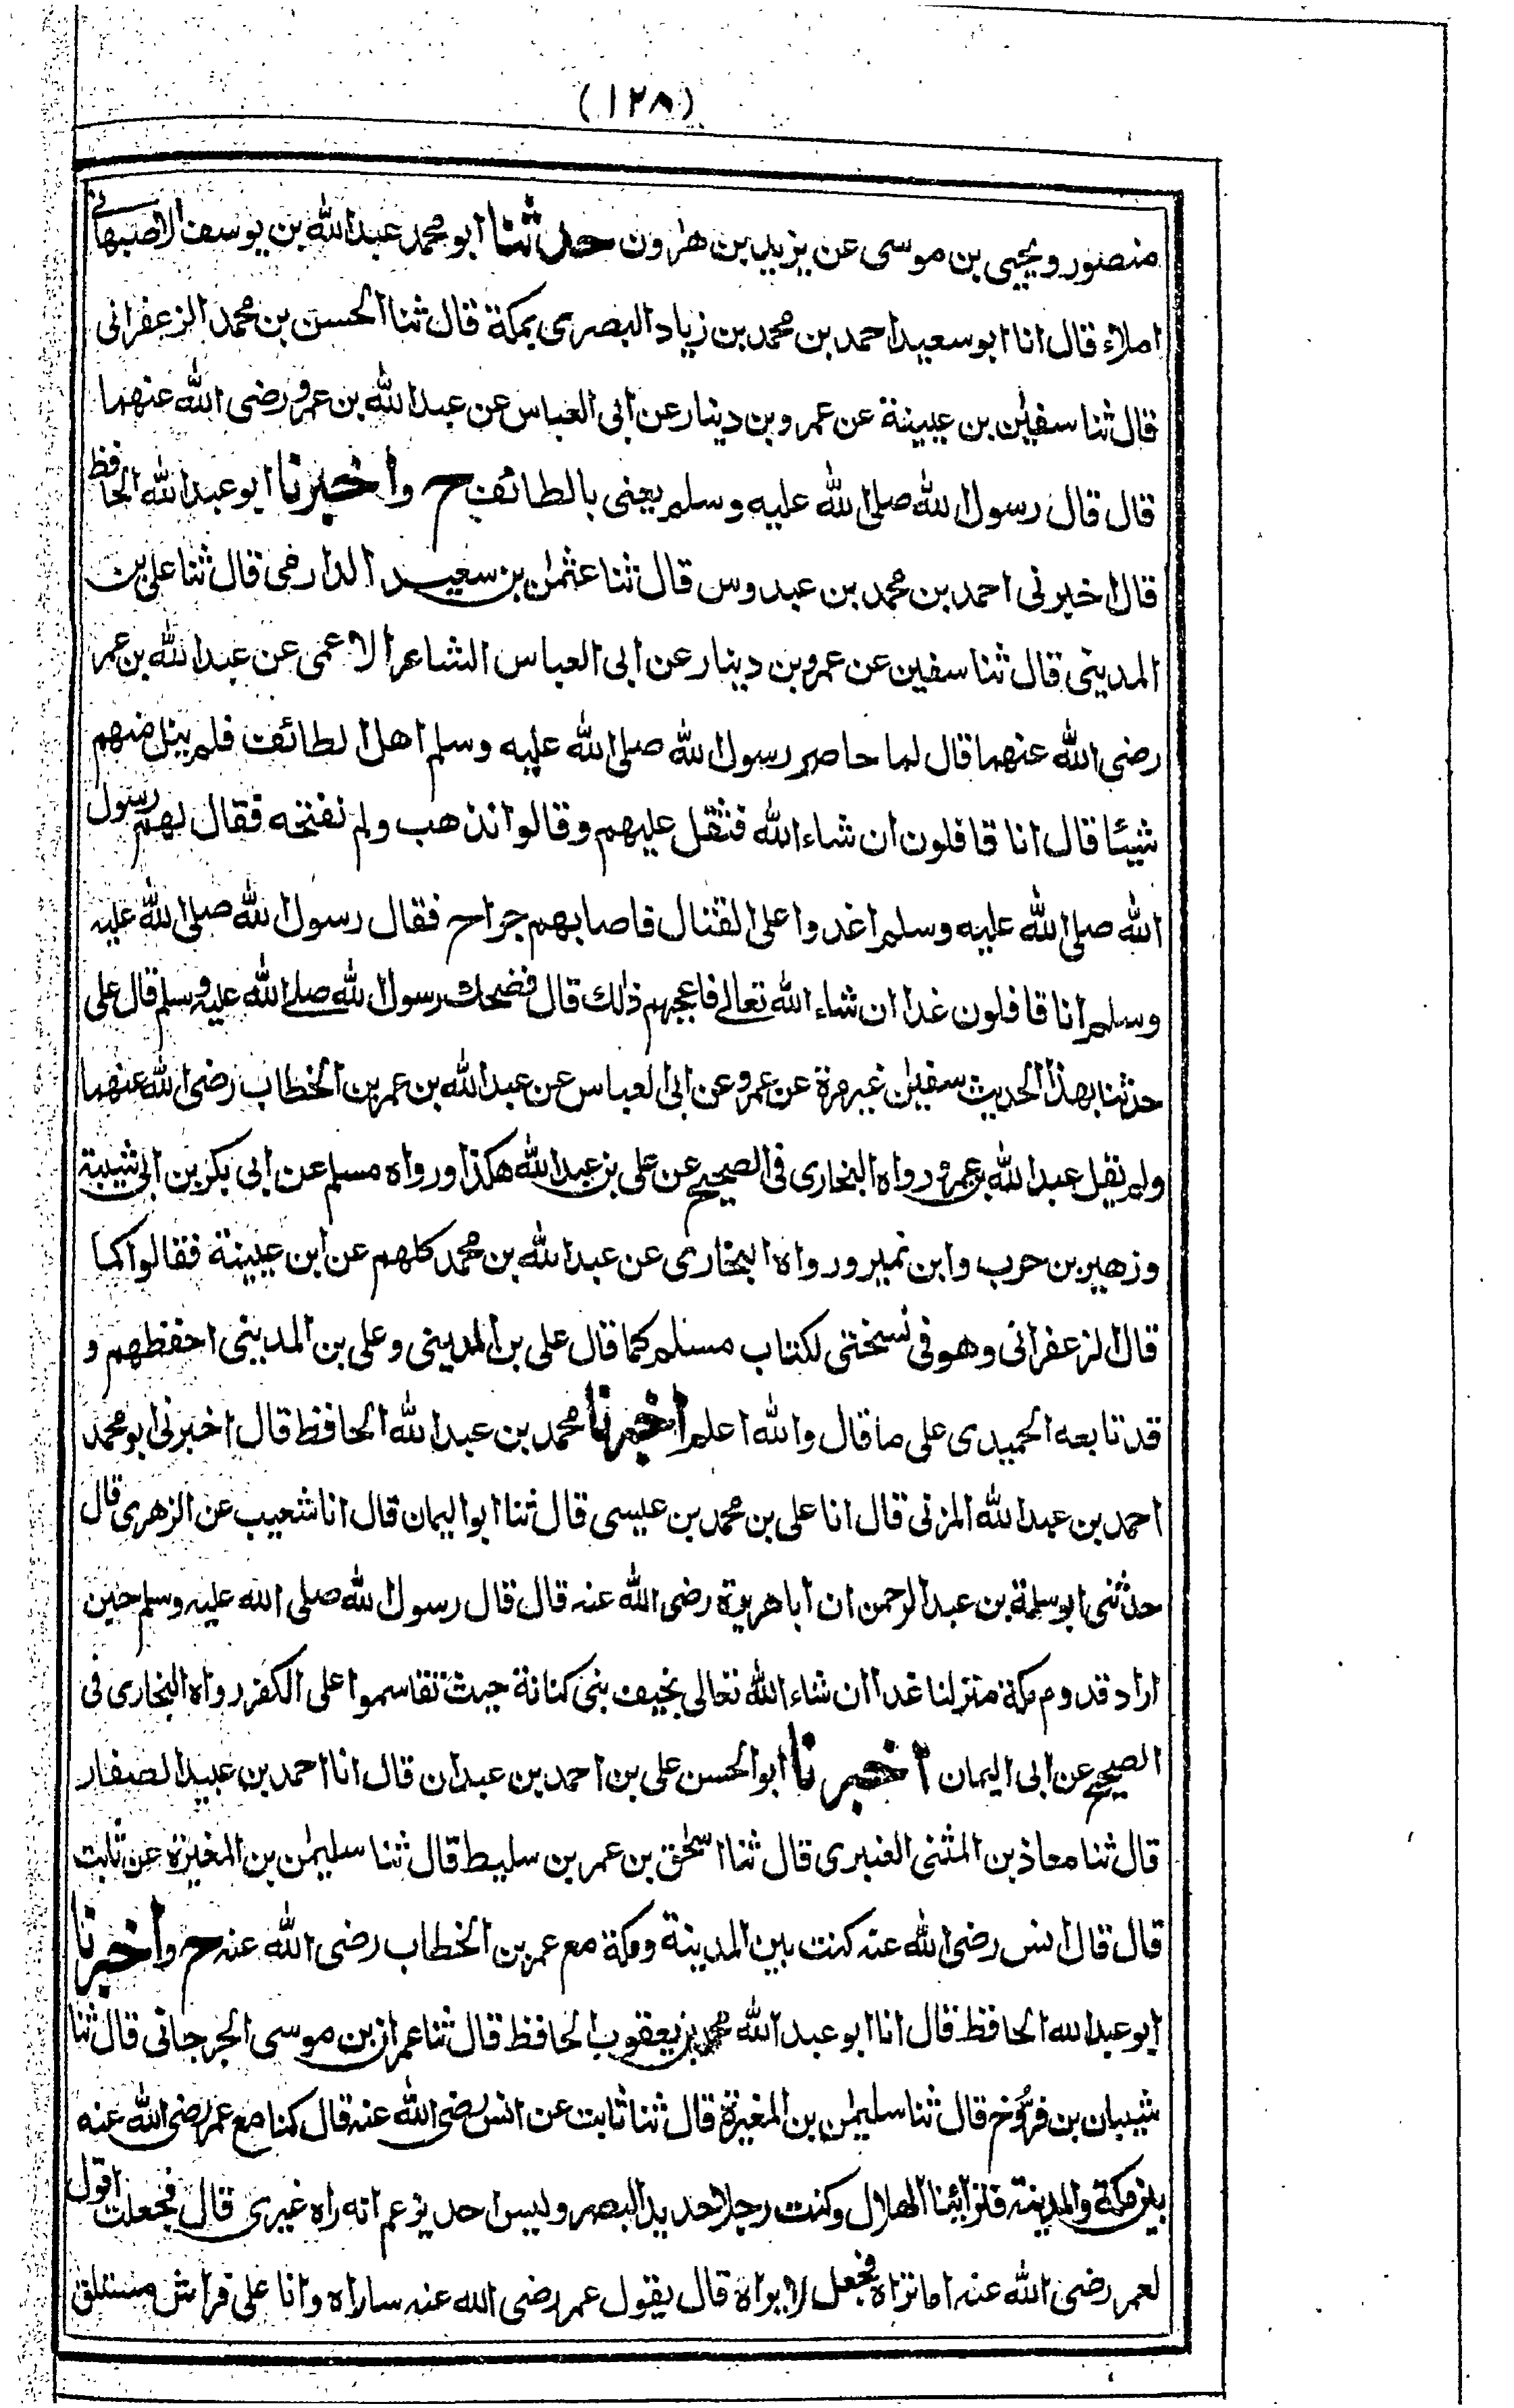 (١٢٨)
منصور ويحيى بن موسى عن يزيد بن هٰرون حدثنا ابو محمد عبد الله بن يوسف الاصبهانے
املاء قال انا ابو سعيد احمد بن محمد بن زياد البصرى بمكة قال ثنا الحسن بن محمد الزعفرانى
قال ثنا سفيٰن بن عيينة عن عمرو بن دينار عن ابى العباس عن عبد الله بن عمرو رضى الله عنهما
قال قال رسول الله صلى الله عليه وسلم يعنى بالطائف ح واخبرنا ابو عبد الله الحافظ
قال اخبرنى احمد بن محمد بن عبدوس قال ثنا عثمٰن بن سعيد الدارمى قال ثنا على بن
المدينى قال ثنا سفين عن عمرو بن دينار عن ابى العباس الشاعر الاعمى عن عبد الله بن عمر
رضى الله عنهما قال لما حاصر رسول الله صلى الله عليه وسلم اهل الطائف فلم ينل منهم
شيئا قال انا قافلون ان شاء الله فثقل عليهم وقالوا نذهب ولم نفتحه فقال لهم رسول
الله صلى الله عليه وسلم اغدوا على القتال فاصابهم جراح فقال رسول الله صلى الله عليه
وسلم انا قافلون غدا ان شاء الله تعالے فاعجبهم ذلك قال فضحك رسول الله صلے الله عليه وسلم قال على
حدثنا بهذا الحديث سفيٰن غير مرة عن عمرو عن ابى العباس عن عبد الله بن عمر بن الخطاب رضى الله عنهما
ولم يقل عبد الله بن عمرو رواه البخارى فى الصحيح عن على بن عبد الله هكذا ورواه مسلم عن ابى بكر بن ابى شيبة
وزهير بن حرب وابن نمير ورواه البخارى عن عبد الله بن محمد كلهم عن ابن عيينة فقالوا كما
قال الزعفرانى وهو فى نسختى لكتاب مسلم كما قال على بن المدينى وعلى بن المدينى احفظهم و
قد تابعه الحميدى على ما قال والله اعلم اخبرنا محمد بن عبد الله الحافظ قال اخبرنى ابو محمد
احمد بن عبد الله المزنى قال انا على بن محمد بن عيسى قال ثنا ابو اليمان قال انا شعيب عن الزهرى قال
حدثنى ابو سلمة بن عبد الرحمن ان ابا هريرة رضى الله عنه قال قال رسول الله صلى الله عليه وسلم حين
اراد قدوم مكة منزلنا غدا ان شاء الله تعالى بخيف بنى كنانة حيث تقاسموا على الكفر رواه البخارى فى
الصحيح عن ابى اليمان اخبرنا ابو الحسن على بن احمد بن عبدان قال انا احمد بن عبيد الصفار
قال ثنا معاذ بن المثنى العنبرى قال ثنا اسحٰق بن عمر بن سليط قال ثنا سليمٰن بن المغيرة عن ثابت
قال قال انس رضى الله عنه كنت بين المدينة ومكة مع عمر بن الخطاب رضى الله عنه ح واخبرنا
ابو عبد الله الحافظ قال انا ابو عبد الله محمد بن يعقوب الحافظ قال ثنا عمران بن موسى الجرجانى قال ثنا
شيبان بن فرُّوخ قال ثنا سليمٰن بن المغيرة قال ثنا ثابت عن انس رضى الله عنه قال كنا مع عمر رضى الله عنه
بين مكة والمدينة فترائنا الهلال وكنت رجلا حديد البصر وليس احد يزعم انه راه غيرى قال فجعلت اقول
لعمر رضى الله عنه اما تراه فجعل لا يراه قال يقول عمر رضى الله عنه ساراه وانا على فراش مستلق